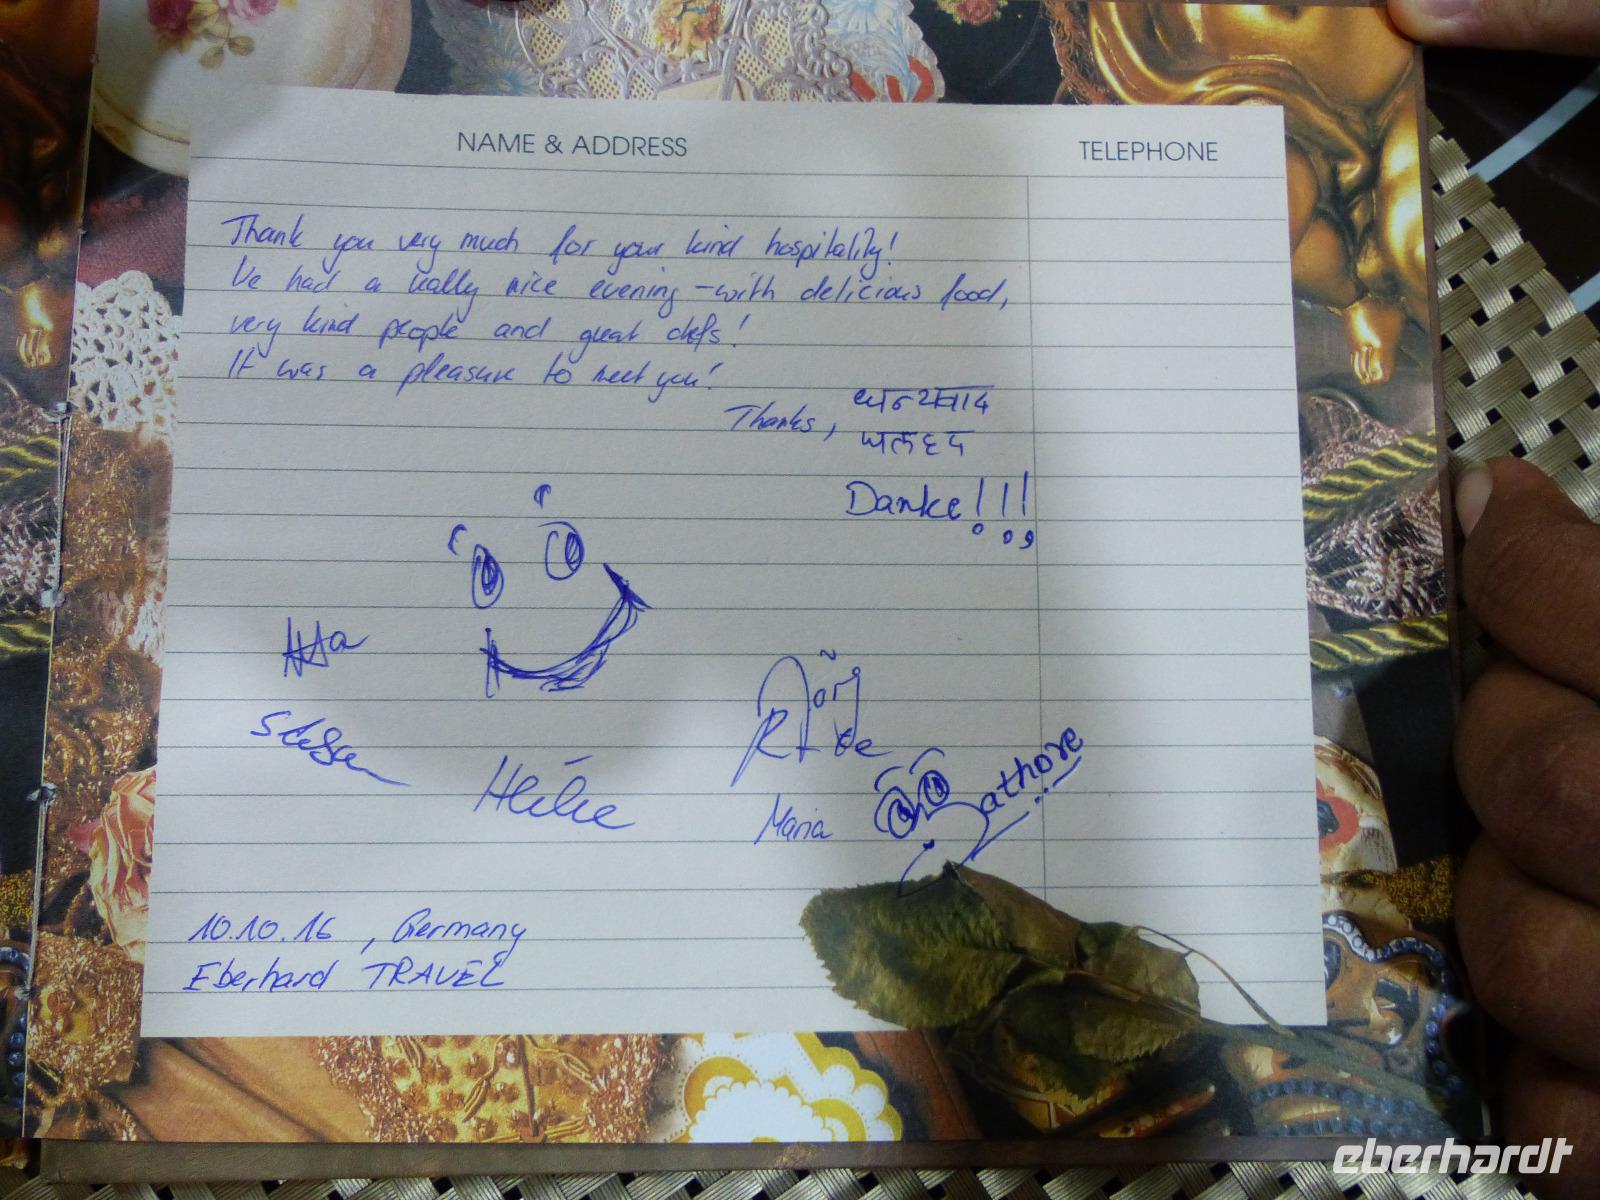 NAME & ADDRESS
TELEPHONE
Thank you very much for your kind hospitality!
We had a really nice evening - with delicious food,
very kind people and great chefs!
It was a pleasure to meet you!
Thanks, धन्यवाद
Danke!!!
Maria
athore
10.10.16, Germany
Eberhard TRAVEL
eberhardt